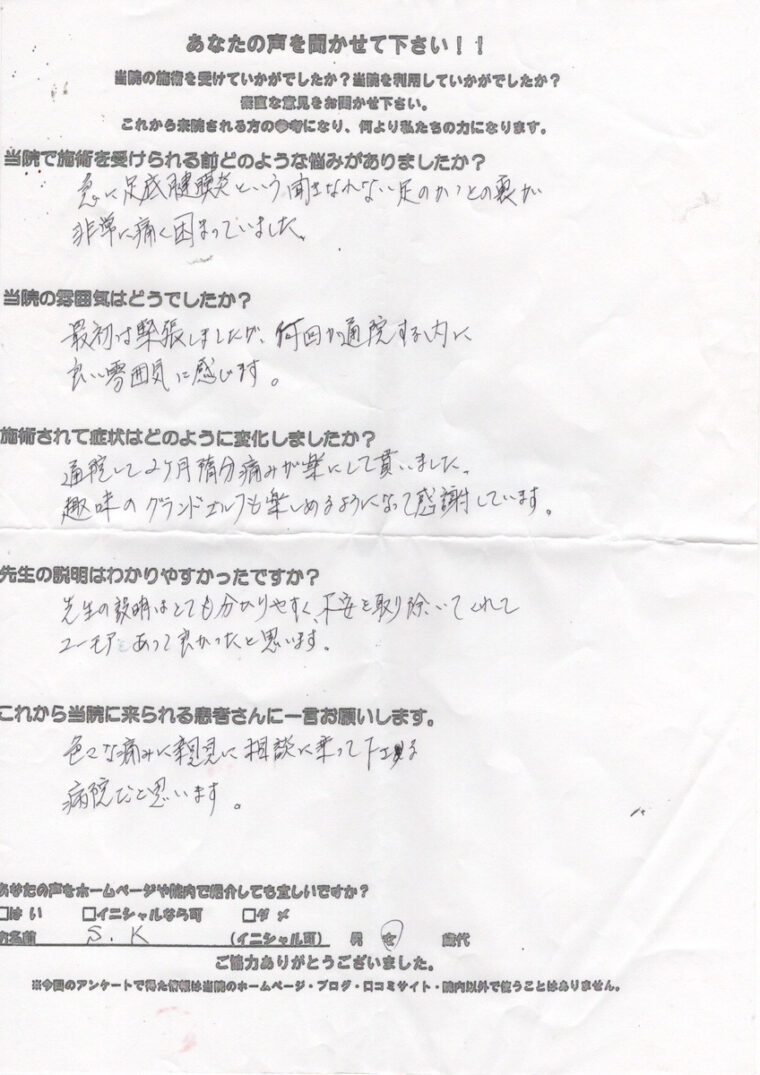 あなたの声を聞かせて下さい！！
当院の施術を受けていかがでしたか？当院を利用していかがでしたか？
率直な意見をお聞かせ下さい。
これから来院される方の参考になり、何より私たちの力になります。
当院で施術を受けられる前どのような悩みがありましたか？
急に足底腱膜炎という聞きなれない足のかかとの裏が
非常に痛く困まっていました。
当院の雰囲気はどうでしたか？
最初は緊張しましたが、何回か通院する内に
良い雰囲気に感じます。
施術されて症状はどのように変化しましたか？
通院して2ヶ月随分痛みが楽にして貰いました。
趣味のグランドゴルフも楽しめるようになって感謝しています。
先生の説明はわかりやすかったですか？
先生の説明はとても分かりやすく、不安を取り除いてくれて
ユーモアもあって良かったと思います。
これから当院に来られる患者さんに一言お願いします。
色々な痛みに親見に相談に乗って下さる
病院だと思います。
あなたの声をホームページや院内で紹介しても宜しいですか？
□はい □イニシャルなら可 □ダメ
お名前 S.K (イニシャル可) 男 女 歳代
ご協力ありがとうございました。
※今回のアンケートで得た情報は当院のホームページ・ブログ・口コミサイト・院内以外で使うことはありません。